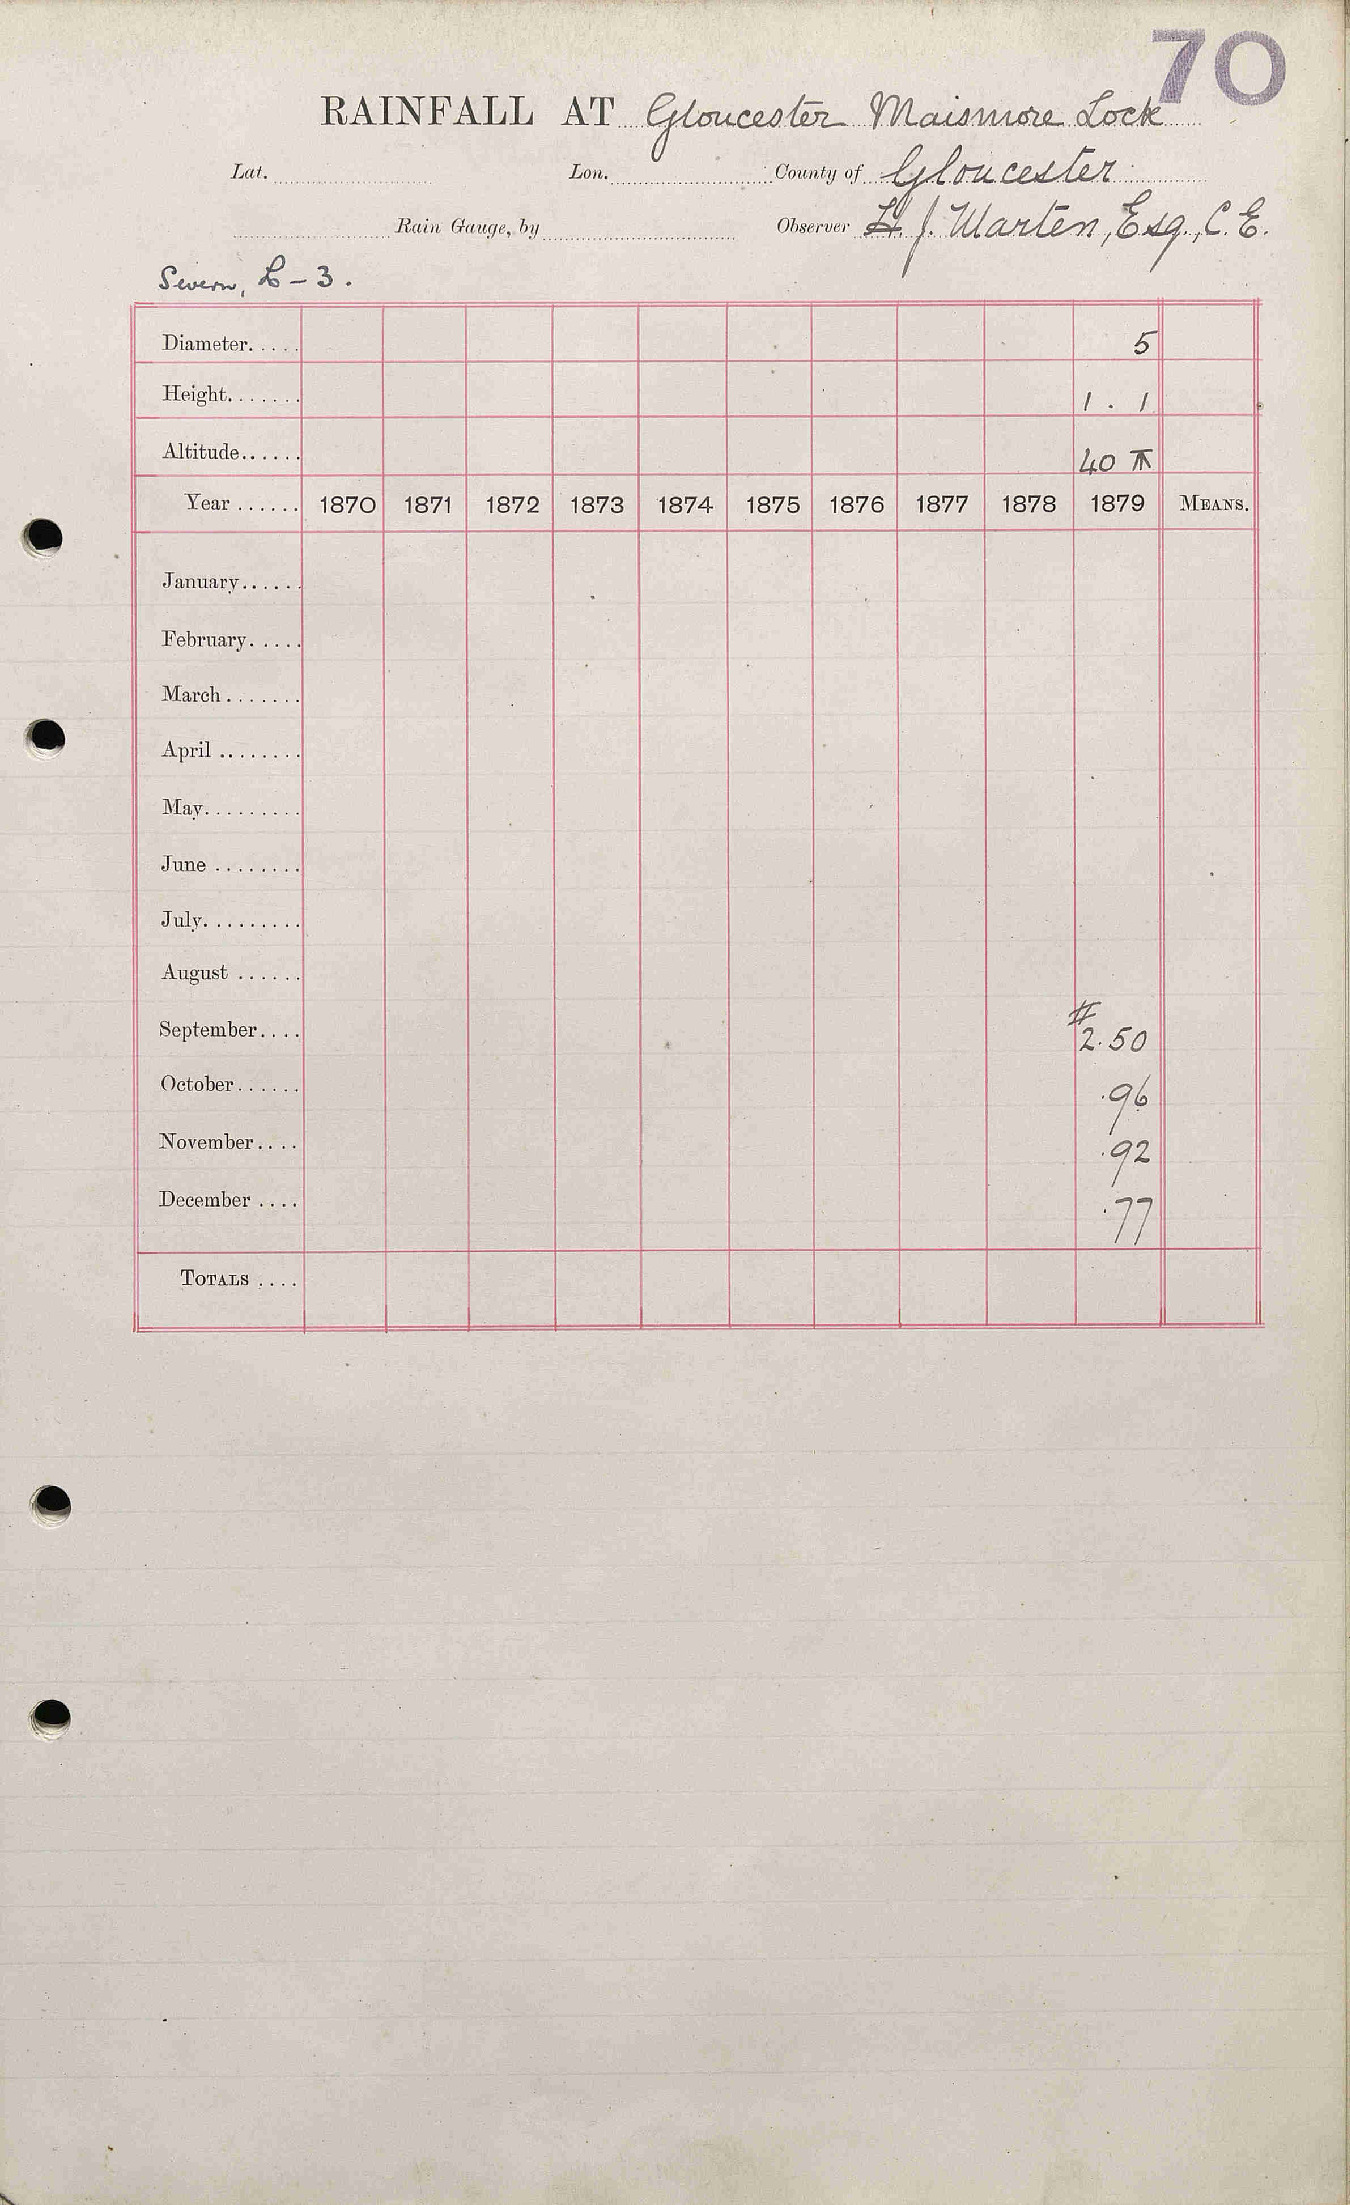 70
RAINFALL AT Gloucester Maismore Lock
Lat. Lon. County of Gloucester
Rain Gauge, by Observer H. J. Marten, Esq., C. E.
Severn, L - 3.
Diameter 5
Height 1 . 1
Altitude 40
Year 1870 1871 1872 1873 1874 1875 1876 1877 1878 1879 MEANS.
January
February
March
April
May
June
July
August
September # 2.50
October .96
November .92
December .77
TOTALS